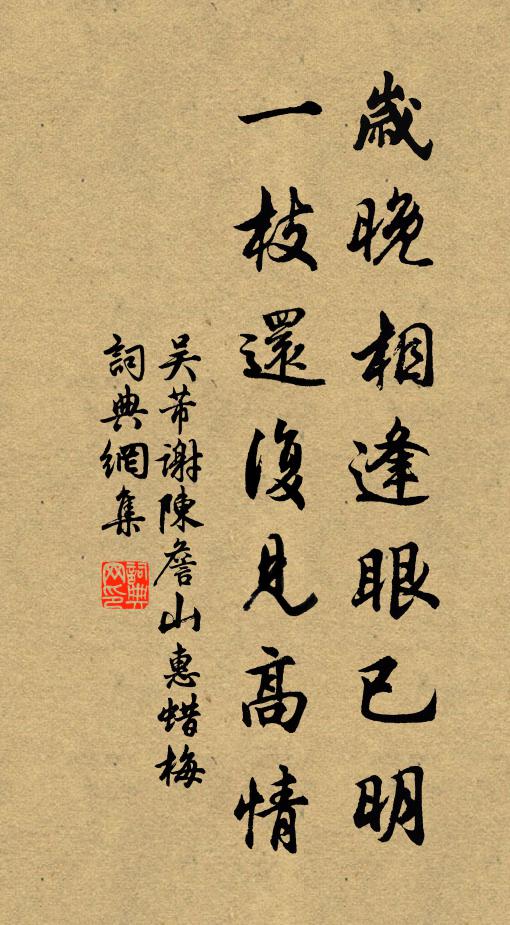 歲晚相逢眼已明
一枝還復見高情
吴芾谢陳詹山惠蜡梅
詞典網集
詞典网印